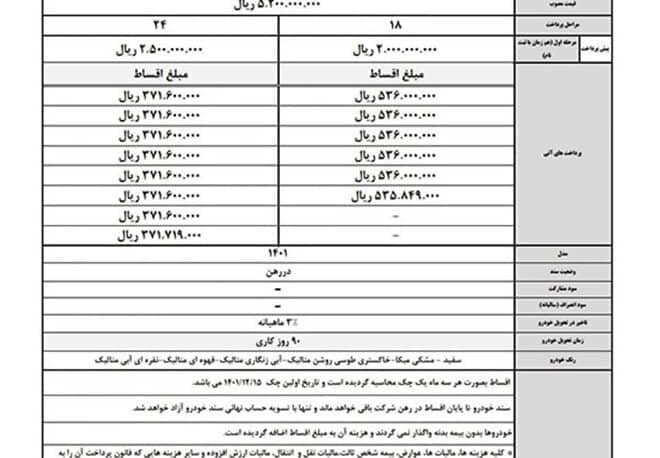 قیمت مصوب ۵.۲۰۰.۰۰۰.۰۰۰ ریال
مراحل پرداخت ۱۸ ۲۴
پیش پرداخت مرحله اول (هم زمان با ثبت نام) ۲.۰۰۰.۰۰۰.۰۰۰ ریال ۲.۵۰۰.۰۰۰.۰۰۰ ریال
پرداخت های آتی مبلغ اقساط مبلغ اقساط
۵۳۶.۰۰۰.۰۰۰ ریال ۳۷۱.۶۰۰.۰۰۰ ریال
۵۳۶.۰۰۰.۰۰۰ ریال ۳۷۱.۶۰۰.۰۰۰ ریال
۵۳۶.۰۰۰.۰۰۰ ریال ۳۷۱.۶۰۰.۰۰۰ ریال
۵۳۶.۰۰۰.۰۰۰ ریال ۳۷۱.۶۰۰.۰۰۰ ریال
۵۳۶.۰۰۰.۰۰۰ ریال ۳۷۱.۶۰۰.۰۰۰ ریال
۵۳۵.۸۴۹.۰۰۰ ریال ۳۷۱.۶۰۰.۰۰۰ ریال
- ۳۷۱.۶۰۰.۰۰۰ ریال
- ۳۷۱.۷۱۹.۰۰۰ ریال
مدل ۱۴۰۱
وضعیت سند دررهن
سود مشارکت -
سود انصراف (سالیانه) -
تاخیر در تحویل خودرو ۳٪ ماهیانه
زمان تحویل خودرو ۹۰ روز کاری
رنگ خودرو سفید - مشکی میکا-خاکستری طوسی روشن متالیک-آبی زنگاری متالیک-قهوه ای متالیک-نقره ای آبی متالیک
اقساط بصورت هر سه ماه یک چک محاسبه گردیده است و تاریخ اولین چک ۱۴۰۱/۱۲/۱۵ می باشد.
سند خودرو تا پایان اقساط در رهن شرکت باقی خواهد ماند و تنها با تسویه حساب نهائی سند خودرو آزاد خواهد شد.
خودروها بدون بیمه بدنه واگذار نمی گردند و هزینه آن به مبلغ اقساط اضافه گردیده است.
* کلیه هزینه ها، مالیات ها، عوارض، بیمه شخص ثالث،مالیات نقل و انتقال، مالیات ارزش افزوده و سایر هزینه هایی که قانون پرداخت آن را به